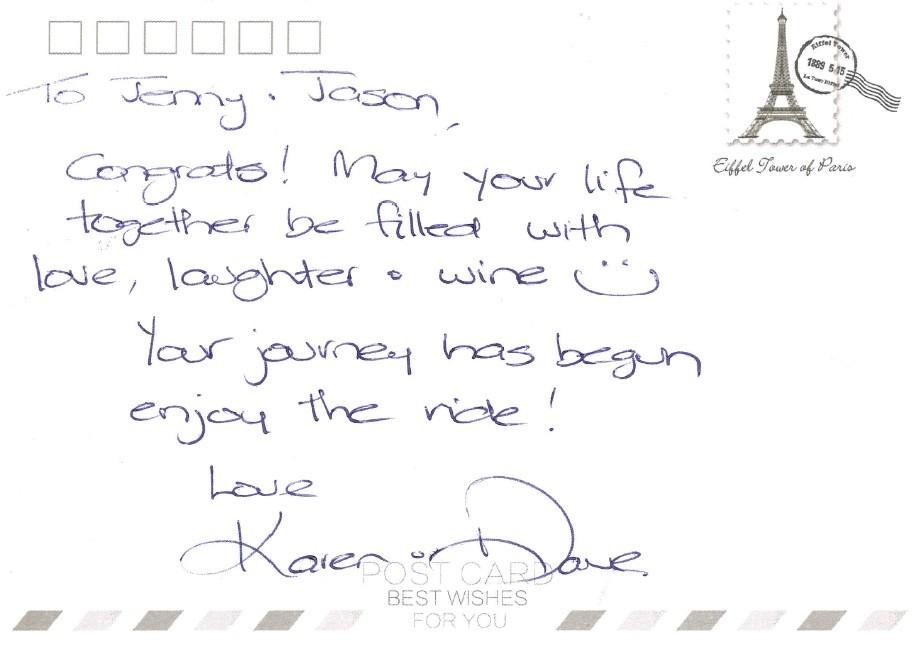 To Jenny · Jason,
Congrats! May your life
together be filled with
love, laughter · wine
Your journey has begun
enjoy the ride!
Love
Karen · Dave.
Eiffel Tower
1889 5 15
Eiffel Tower of Paris
POST CARD
BEST WISHES
FOR YOU